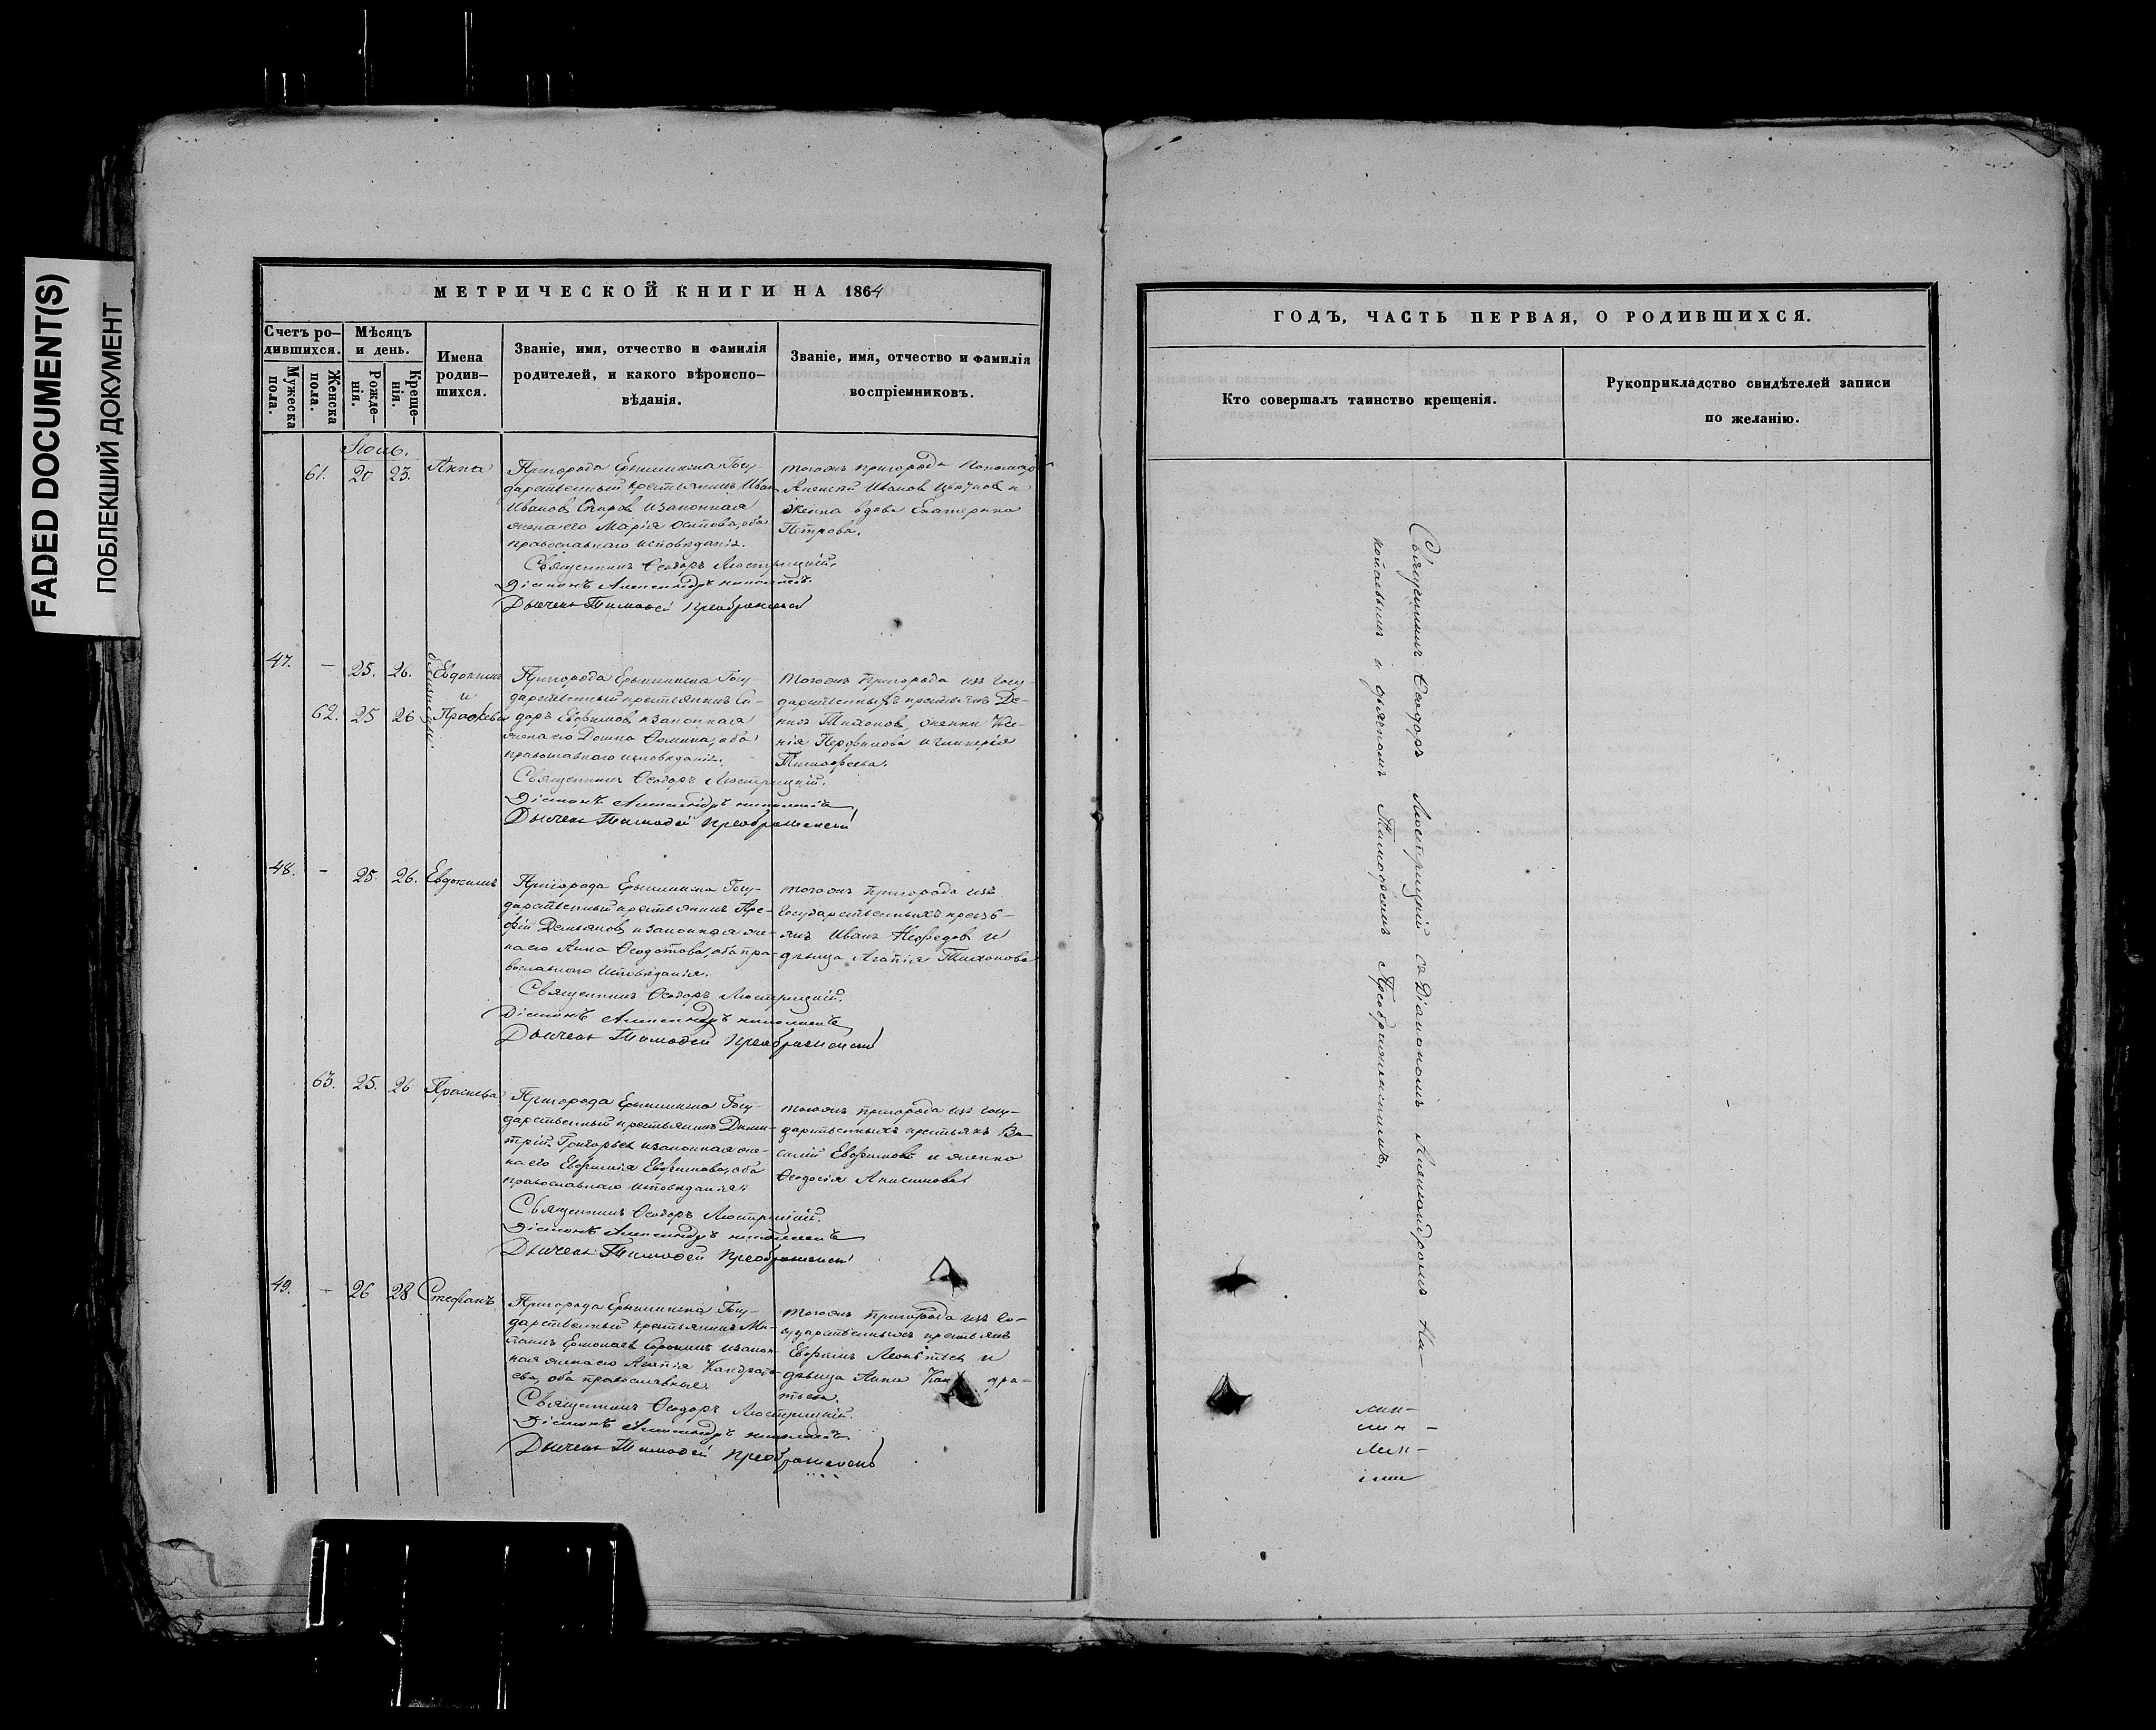 FADED DOCUMENT(S)
ПОБЛЕКШИЙ ДОКУМЕНТ
МЕТРИЧЕСКОЙ КНИГИ НА 1864
Счетъ ро-
дившихся.
Мужеска
пола.
Женска
пола.
Мѣсяцъ
и день.
Рожде-
нія.
Креще-
нія.
Имена
родив-
шихся.
Званіе, имя, отчество и фамилія
родителей, и какого вѣроиспо-
вѣданія.
Званіе, имя, отчество и фамилія
воспріемниковъ.
Іюль.
61. 20 23. Анна
Пригорода Ерыклинска Госу-
дарственный крестьянинъ Иванъ
Иванов и законная
жена его Марія Осипова, оба
православнаго исповѣданія.
Священникъ Ѳеодоръ Люстрицкій.
Діаконъ Александръ
Дьячекъ Тимофей Преображенскій
тогожъ пригорода
Иванов и
вдова Екатерина
Петрова.
47. — 25. 26. Евдокимъ
и
62. 25 26 Праскевья
близнецы.
Пригорода Ерыклинска Госу-
дарственный крестьянинъ Си-
доръ Ефимов и законная
жена его Домна Ѳомина, оба
православнаго исповѣданія.
Священникъ Ѳеодоръ Люстрицкій.
Діаконъ Александръ
Дьячекъ Тимофей Преображенскій
тогожъ пригорода изъ госу-
дарственныхъ крестьянъ Де-
нис Тихонов, женки Ксе-
нія и Гликерія
Тимофеева.
48. — 25. 26. Евдокимъ
Пригорода Ерыклинска Госу-
дарственный крестьянинъ Аре-
фій Демьянов и законная же-
на его Анна Ѳеодотова, оба пра-
вославнаго исповѣданія.
Священникъ Ѳеодоръ Люстрицкій.
Діаконъ Александръ
Дьячекъ Тимофей Преображенскій
тогожъ пригорода изъ
Государственныхъ кресть-
янъ Иванъ Нефедов и
дѣвица Агапія Тихонова
63. 25. 26 Праскева
Пригорода Ерыклинска Госу-
дарственный крестьянинъ Дими-
трій Григорьев и законная же-
на его Евфимія Евфимова, оба
православнаго исповѣданія.
Священникъ Ѳеодоръ Люстрицкій.
Діаконъ Александръ
Дьячекъ Тимофей Преображенскій
тогожъ пригорода изъ госу-
дарственныхъ крестьянъ Ва-
силій Евфимовъ и женка
Ѳеодосія Анисимова
49. — 26 28 Стефанъ
Пригорода Ерыклинска Госу-
дарственный крестьянинъ Ми-
хаилъ Ермолаев Сорокинъ и закон-
ная жена его Агапія Кандрать-
ева, оба православные.
Священникъ Ѳеодоръ Люстрицкій.
Діаконъ Александръ
Дьячекъ Тимофей Преображенскій
тогожъ пригорода изъ го-
сударственныхъ крестьянъ
Евфимъ Леонтьев и
дѣвица Анна Кандра-
тьева.
ГОДЪ, ЧАСТЬ ПЕРВАЯ, О РОДИВШИХСЯ.
Кто совершалъ таинство крещенія.
Рукоприкладство свидѣтелей записи
по желанію.
Священникъ Ѳеодоръ Люстрицкій съ Діакономъ Александромъ Ни-
колаевымъ и дьячкомъ Тимофеемъ Преображенскимъ.